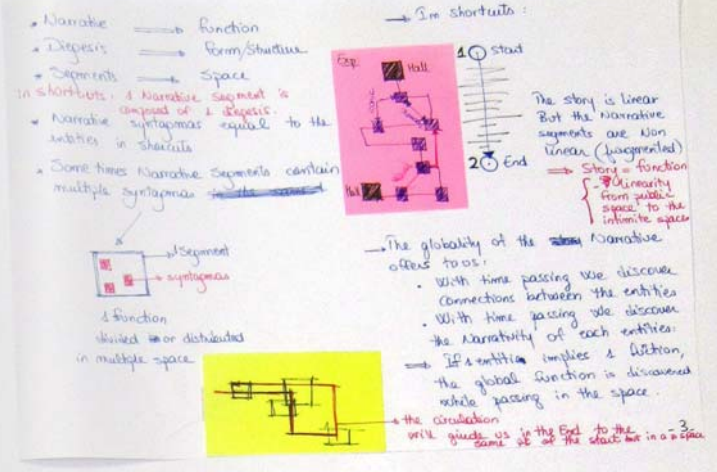 • Narrative ⟹ function
• Diegesis ⟹ Form/Structure
• Segments ⟹ Space
In shortcuts: 1 Narrative Segment is
composed of 1 diegesis.
• Narrative syntapmas equal to the
entities in shorcuts
• Some times Narrative Segments contain
multiple syntapmas
→ 1 Segment
→ syntapmas
1 function
divided or distributed
in multiple space
→ Im shortcuts:
Exp.
Hall
Hall
1 Start
2 End
The story is linear
But the Narrative
segments are Non
linear (fragmented)
⟹ Story = function
linearity
from public
space to the
intimite space
→ The globality of the Narrative
offers to us:
• With time passing we discover
connections between the entities
• With time passing we discover
the Narrativity of each entities.
⟹ If 1 entitie implies 1 fuction,
the global function is discovered
while passing in the space.
→ the circulation
will giude us in the End to the
same pt of the start but in a space
- 3 -